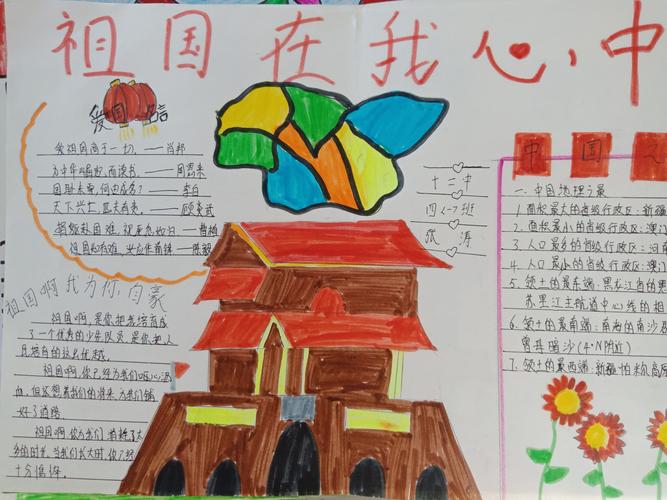 祖国在我心中
爱国名言
爱祖国高于一切。——肖邦
为中华崛起而读书。——周恩来
国耻未雪,何由成名?——李白
天下兴亡,匹夫有责。——顾炎武
捐躯赴国难,视死忽如归——曹植
祖国如有难,汝应作前锋——陈毅
祖国啊我为你自豪
祖国啊,是你把我培育成
了一个优秀的少年队员,是你把人
祖国啊,你已经为我们呕心沥
血,但还想着我们的将来,为我们铺
好了道路
祖国啊,你为我们
的时光,当我们长大时,你已经
十二中
四<一>班
张涛
中国之
一、中国地理之最
1.面积最大的省级行政区:新疆
2.面积最小的省级行政区:澳门
3.人口最多的省级行政区:河南
4.人口最小的省级行政区:澳门
5.领土的最东端:黑龙江省的黑
苏里江主航道中心线的相
6.领土的最南端:南海的南沙
曾母暗沙(4°N附近)
7.领土的最西端:新疆帕米尔高原